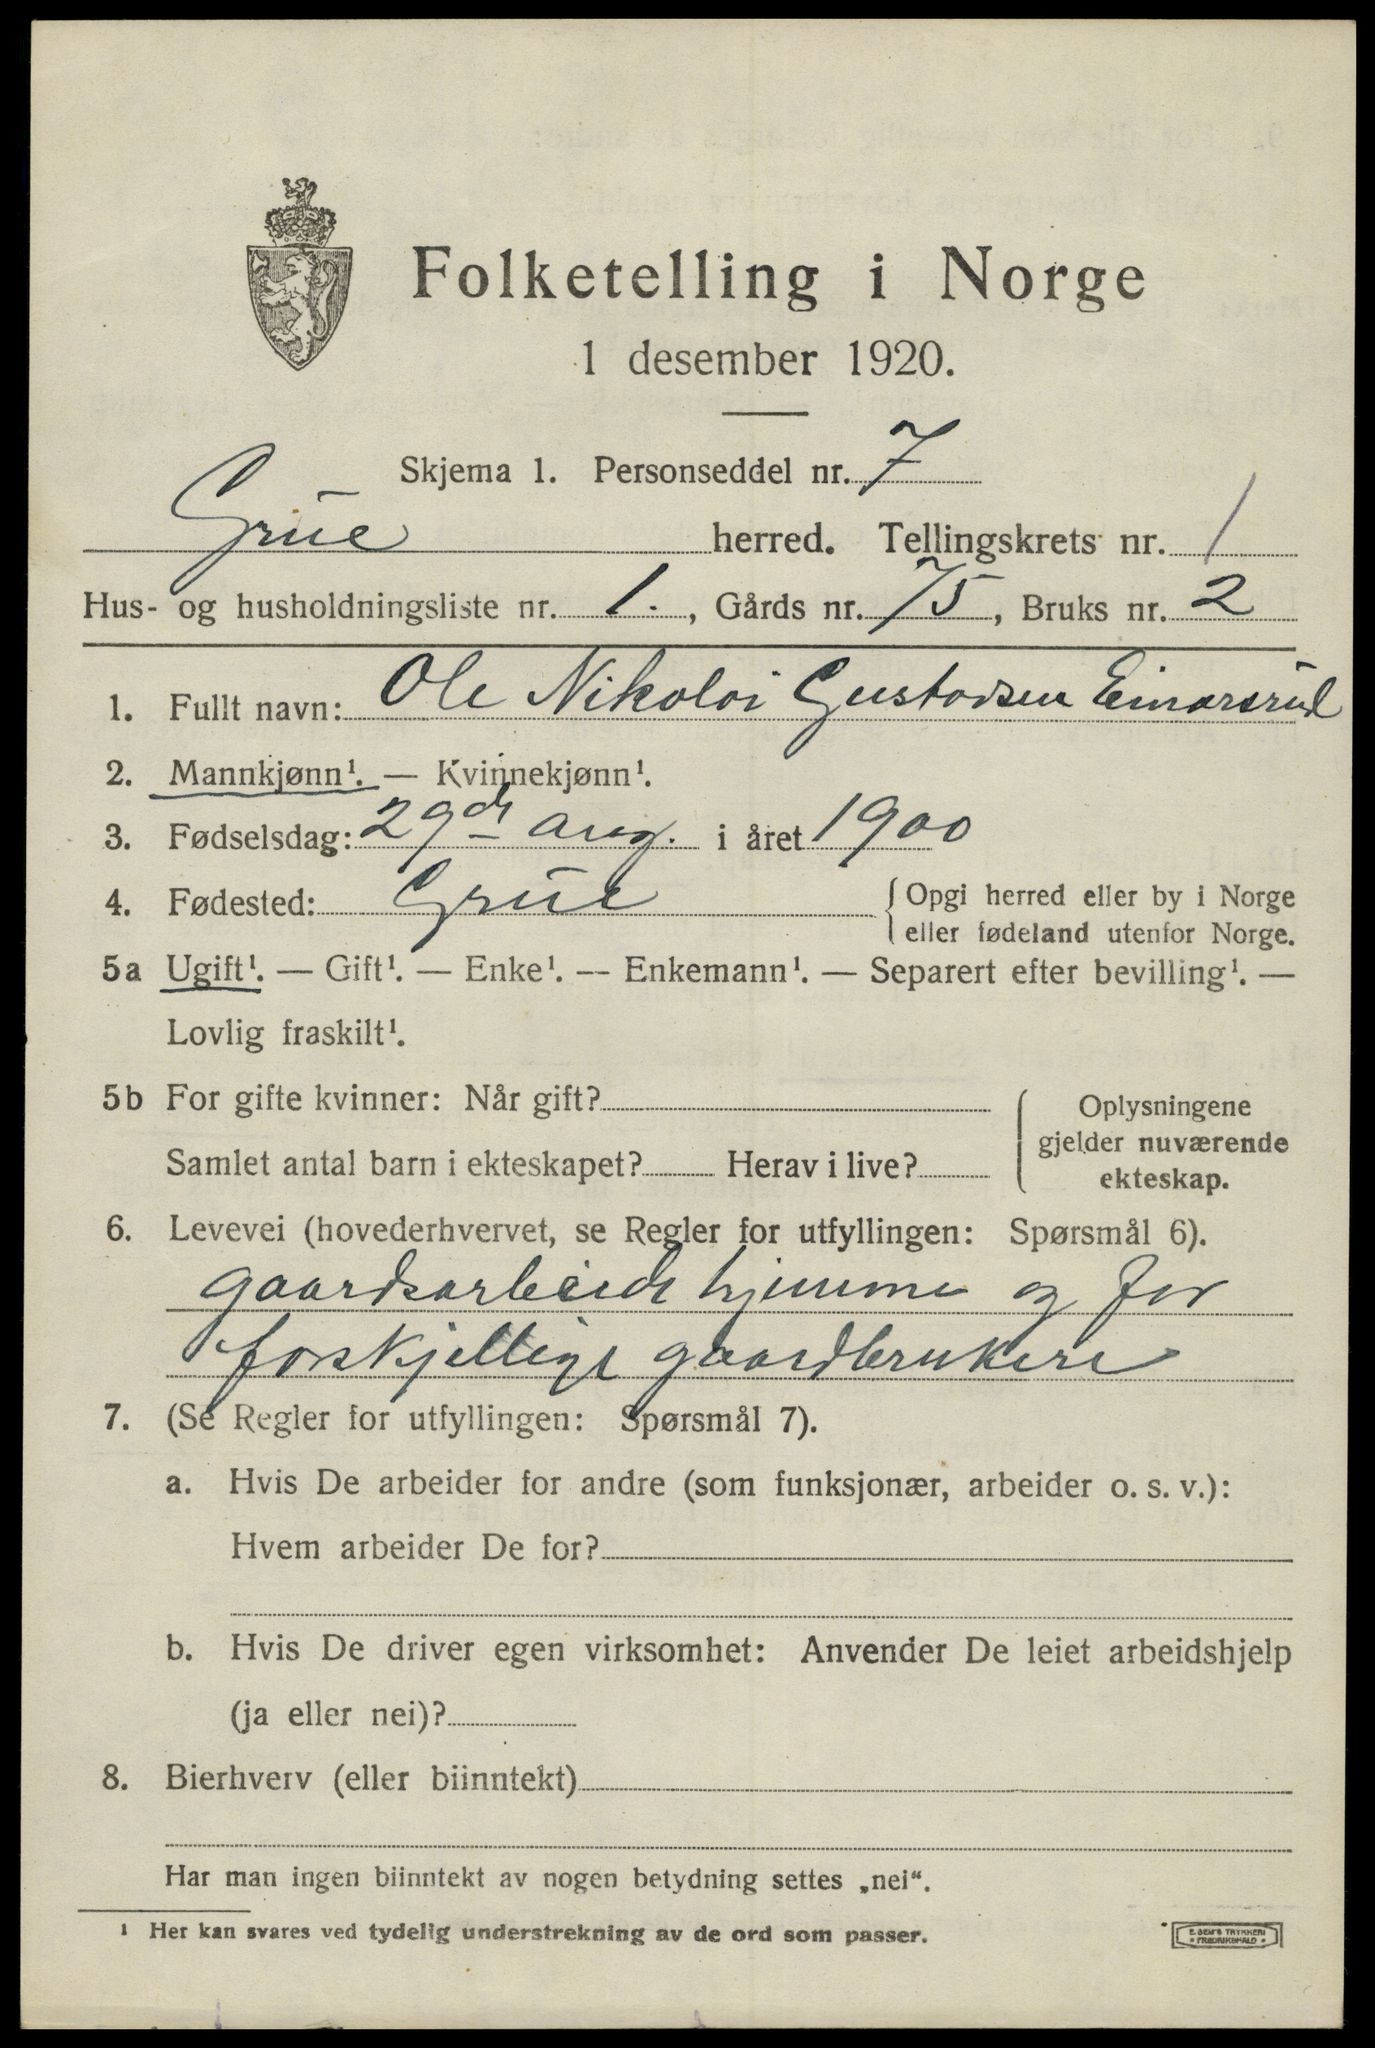 Folketelling i Norge
1 desember 1920.
Skjema 1. Personseddel nr. 7
Grue herred. Tellingskrets nr. 1
Hus- og husholdningsliste nr. 1., Gårds nr. 75, Bruks nr. 2
1. Fullt navn: Ole Nikolai Gustavsen Einarsrud
2. Mannkjønn¹. — Kvinnekjønn¹.
3. Fødselsdag: 29de aug. i året 1900
4. Fødested: Grue {Opgi herred eller by i Norge
eller fødeland utenfor Norge.
5a Ugift¹. — Gift¹. — Enke¹. — Enkemann¹. — Separert efter bevilling¹. —
Lovlig fraskilt¹.
5b For gifte kvinner: Når gift?
Samlet antal barn i ekteskapet? Herav i live?
Oplysningene
gjelder nuværende
ekteskap.
6. Levevei (hovederhvervet, se Regler for utfyllingen: Spørsmål 6).
gaardsarbeide hjemme og for
forskjellige gaardbrukere
7. (Se Regler for utfyllingen: Spørsmål 7).
a. Hvis De arbeider for andre (som funksjonær, arbeider o. s. v.):
Hvem arbeider De for?
b. Hvis De driver egen virksomhet: Anvender De leiet arbeidshjelp
(ja eller nei)?
8. Bierhverv (eller biinntekt)
Har man ingen biinntekt av nogen betydning settes „nei“.
¹ Her kan svares ved tydelig understrekning av de ord som passer.
E. SEM'S TRYKKERI
• FREDRIKSHALD •